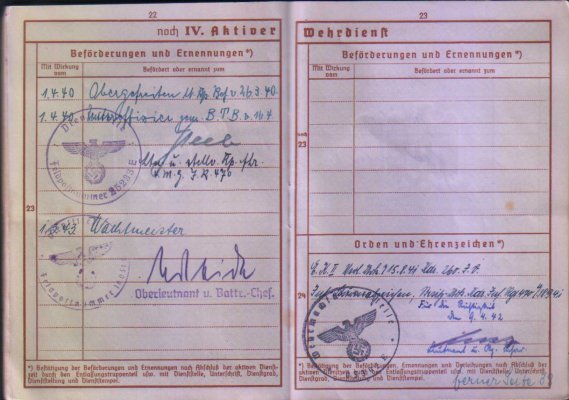 22
noch IV. Aktiver
Beförderungen und Ernennungen*)
Mit Wirkung vom
Befördert oder ernannt zum
1.4.40 Obergefreiten lt. Kp. Bef. v. 26.3.40.
1.4.40 Unteroffizier gem. B.T.B. v. 16.4
Dienststelle
Feldpostnummer 25295 E
Lt. u. stellv. Kp. Fhr.
4. M.G. J.R. 476
23
Wachtmeister
Dienststelle
Feldpostnummer
Oberleutnant u. Battr.-Chef.
*) Bestätigung der Beförderungen und Ernennungen nach Abschluß der aktiven Dienst-
zeit durch den Entlassungstruppenteil usw. mit Dienststelle, Unterschrift, Dienstgrad,
Dienststellung und Dienststempel.
23
Wehrdienst
Beförderungen und Ernennungen*)
Mit Wirkung vom
Befördert oder ernannt zum
noch
23
Orden und Ehrenzeichen*)
E.K. II 15.8.41 Kdr. 260. J.D.
24
Inf. Sturmabzeichen.
Für die Richtigkeit
den 9.4.42
Leutnant u.
*) Bestätigung der Beförderungen, Ernennungen und Verleihungen nach Abschluß der
aktiven Dienstzeit durch den Entlassungstruppenteil usw. mit Dienststelle, Unterschrift, Dienst-
grad, Dienststellung und Dienststempel.
ferner Seite